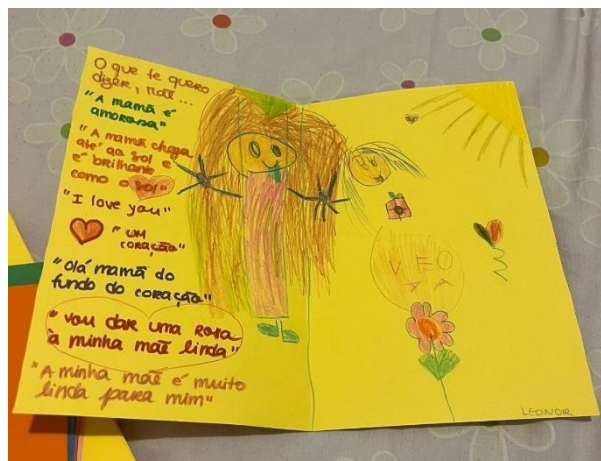 O que te quero
dizer, mãe ...
"A mamã é
amorosa"
"A mamã chega
até ao sol e
é brilhante
como o sol"
"I love you"
" um
coração"
"Olá mamã do
fundo do coração"
"vou dar uma rosa
à minha mãe linda"
"A minha mãe é muito
linda para mim"
LEONOR